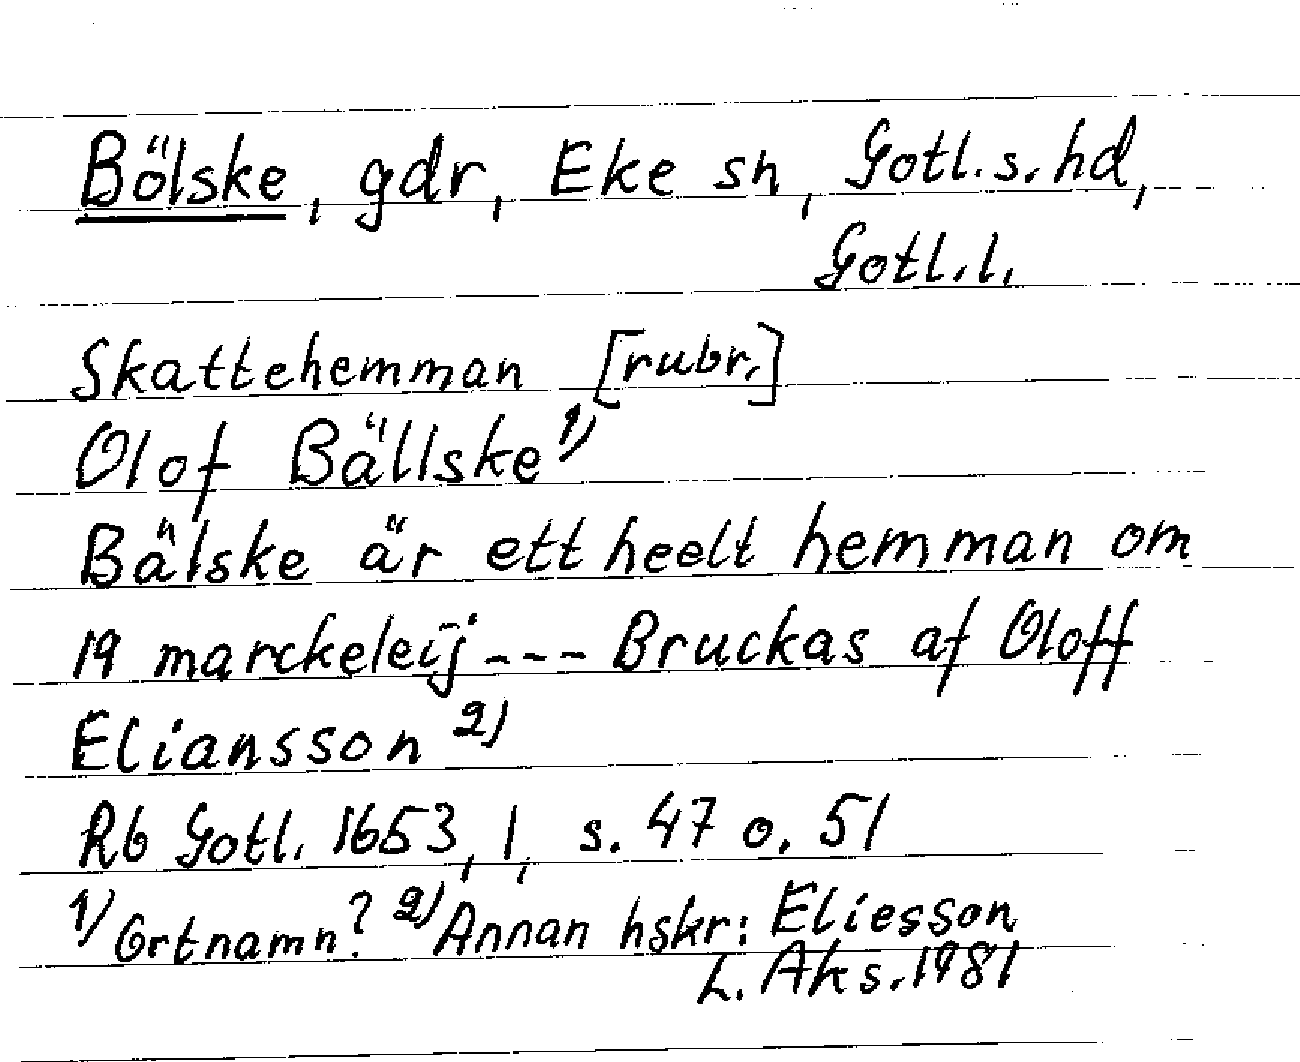 Bölske, gdr, Eke sn, Gotl.s.hd,
Gotl.l.
Skattehemman [rubr.]
Olof Bällske 1)
Bälske är ett heelt hemman om
19 marckeleij --- Bruckas af Oloff
Eliansson 2)
Rb Gotl. 1653, 1, s. 47 o. 51
1) Ortnamn? 2) Annan hskr: Eliesson
L. Aks. 1981